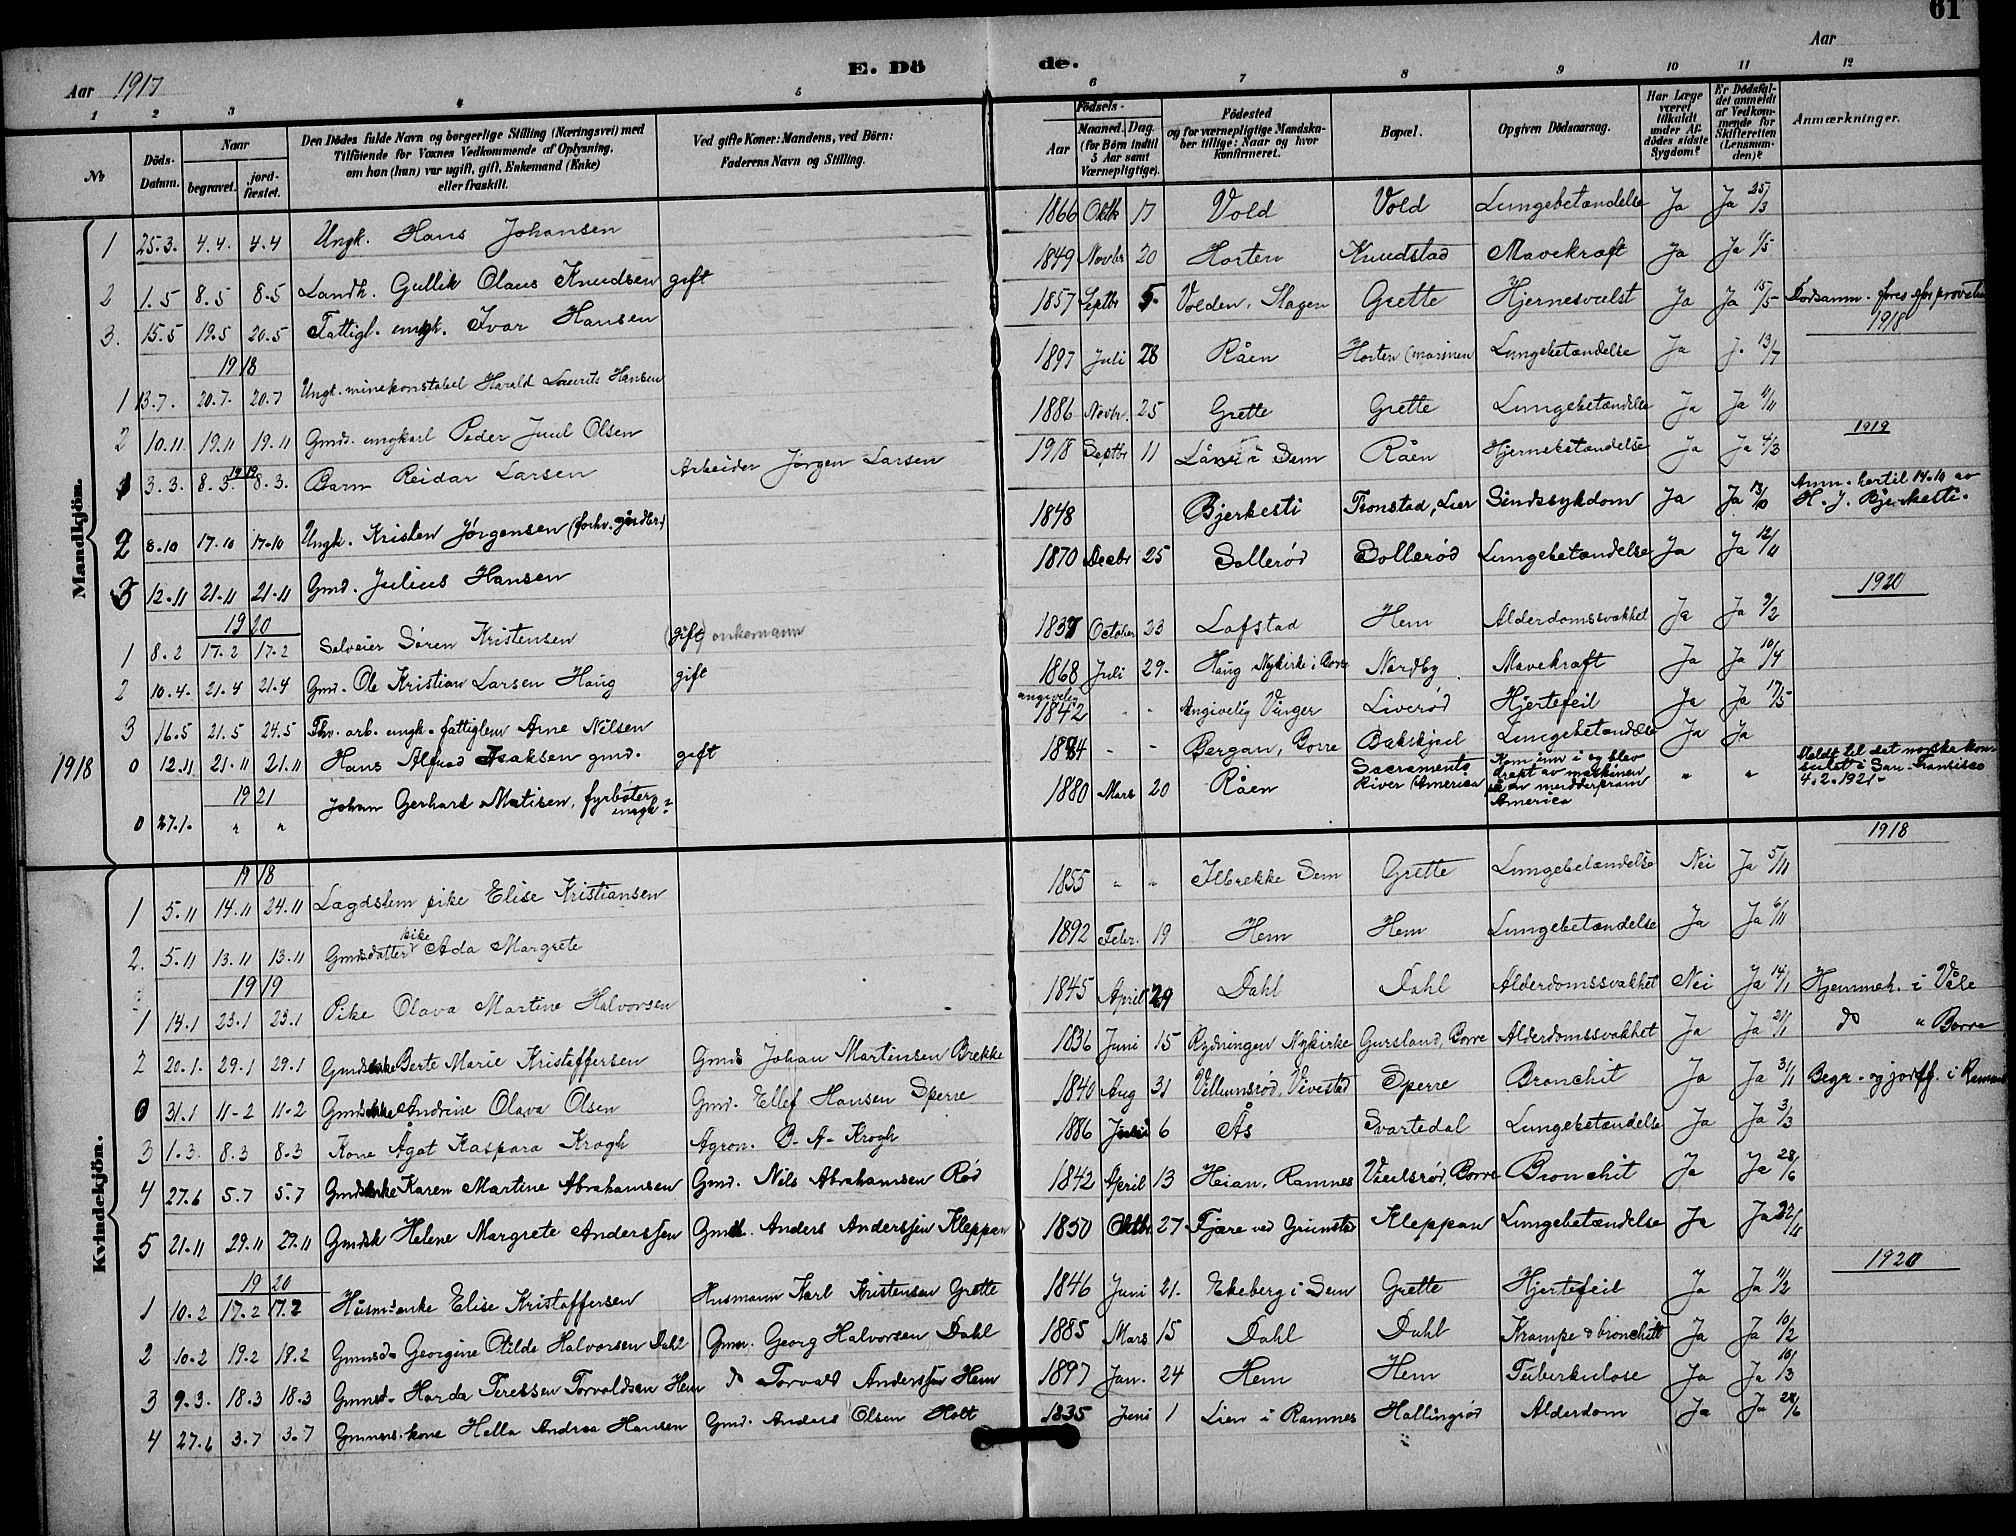 61
Aar 1917
E. Dö
de.
Aar
1 2 3 4 5 6 7 8 9 10 11 12
№
Döds-Datum.
Naar
begravet.
jord-fæstet.
Den Dödes fulde Navn og borgerlige Stilling (Næringsvei) med
Tilföiende for Voxnes Vedkommende af Oplysning,
om han (hun) var ugift, gift, Enkemand (Enke)
eller fraskilt.
Ved gifte Koner: Mandens, ved Börn:
Faderens Navn og Stilling.
Födsels-
Aar
Maaned. Dag.
(for Börn indtil
5 Aar samt
Værnepligtige).
Födested
og for værnepligtige Mandska-
ber tillige: Naar og hvor
konfirmeret.
Bopæl.
Opgiven Dödsaarsag.
Har Læge
været
tilkaldt
under Af-
dödes sidste
Sygdom?
Er Dödsfal-
det anmeldt
af Vedkom-
mende for
Skifteretten
(Lensman-
den)?
Anmærkninger.
Mandkjön.
1 25.3. 4.4. 4.4 Ungk. Hans Johansen 1866 Oktbr 17 Vold Vold Lungebetændelse Ja Ja 25/3
2 1.5 8.5 8.5 Landh. Gullik Olaus Knudsen gift 1849 Novbr 20 Horten Knudstad Mavekræft Ja Ja 1/5
3. 15.5 19.5 20.5 Fattigl. ungk. Ivar Hansen 1857 Septbr 5. Volden, Slagen Grette Hjernesvulst Ja Ja 15/5
1918 1918
1 13.7. 20.7. 20.7 Ungk. minekonstabel Harald Laurits Hansen 1897 Juli 28 Råen Horten (marinen Lungebetændelse Ja J. 13/7
2 10.11. 19.11 19.11 Gmd. ungkarl Peder Juul Olsen 1886 Novbr. 25 Grette Grette Lungebetændelse Ja Ja 11/11
1919 1919
1 3.3. 8.3. 8.3. Barn Reidar Larsen Arbeider Jörgen Larsen 1918 Septbr 11 i Sem Råen Hjernebetændelse Ja Ja 4/3
2 8.10 17.10 17.10 Ungk. Kristen Jørgensen (forhv. gårdbr.) 1848 Bjerkesti Tronstad, Lier Sindssykdom Ja Ja 13/10 Anm. hertil 14.10 av
H. J. Bjerkesti.
3 12.11 21.11 21.11 Gmd. Julius Hansen 1870 Decbr 25 Sollerød Sollerød Lungebetændelse Ja Ja 12/11
1920 1920
1 8.2 17.2 17.2 Selveier Sören Kristensen (gift) enkemann 1837 October 23 Lofstad Hem Alderdomssvakhet Ja Ja 9/2
2 10.4. 21.4 21.4 Gmd. Ole Kristian Larsen Haug gift 1868 Juli 29. Haug Nykirke i Borre Nordby Mavekræft Ja Ja 10/4
3 16.5 21.5 24.5 Fhv. arb. ungk. fattiglem Arne Nilsen angivelig 1842 - - Angivelig Vinger Liverød Hjertefeil Ja Ja 17/5
1918 0 12.11 21.11 21.11 Hans Alfred Isaksen gmd. gift 1884 - - Bergan, Borre Bakskjed Lungebetændelse Ja Ja
1921
0 27.1. " " Johan Gerhard Matisen, fyrbøter, ungk? 1880 Mars 20 Råen Sacramento River America Kom inn i og blev
drept av maskinen
på en mudderpram
America " " Meldt til det norske kon-
sulat i San-Fransisco
4.2.1921.
Kvindekjön.
1918 1918
1 5.11 14.11 24.11 Lægdslem pike Elise Kristiansen 1855 " " Ilbrekke Sem Grette Lungebetændelse Nei Ja 5/11
2. 5.11 13.11 13.11 Gmdsdatter pike Ada Margrete 1892 Febr. 19 Hem Hem Lungebetændelse Ja Ja 6/11
1919
1 14.1 23.1 23.1 Pike Olava Martine Halvorsen 1845 April 29 Dahl Dahl Alderdomssvakhet Nei Ja 14/1 Hjemmeh. i Våle
2 20.1. 29.1 29.1 Gmdsenke Berte Marie Kristoffersen Gmds Johan Martinsen Brekke 1836 Juni 15 Rydningen Nykirke Gursland, Borre Alderdomssvakhet Ja Ja 21/1 do " Borre
0 31.1 11-2 11-2 Gmdsenke Andrine Olava Olsen Gmd. Ellef Hansen Sperre 1840 Aug 31 Villumsrød, Vivestad Sperre Bronchit Ja Ja 31/1 Begr. og jordf. i Ramnes
3 1.3. 8.3 8.3 Kone Ågot Kaspara Krogh Agron. O. A. Krogh 1886 6 Ås Svartedal Lungebetændelse Ja Ja 3/3
4 27.6 5.7 5.7 Gmdsenke Karen Martine Abrahamsen Gmd. Nils Abrahamsen Rød 1842 April 13 Heian, Ramnes Borre Bronchit Ja Ja 28/6
5 21.11 29.11 29.11 Gmdsk Helene Margrete Anderssen Gmd. Anders Anderssen Kleppan 1850 Oktbr 27 Fjære ved Grimstad Kleppan Lungebetændelse Ja Ja 22/11
1920 1920
1 10.2 17.2 17.2 Husmd enke Elise Kristoffersen Husmann Karl Kristensen Grette 1846 Juni 21. Ekeberg i Sem Grette Hjertefeil Ja Ja 11/2
2 10.2 19.2 19.2 Gmmsd. Georgine Otilde Halvorsen Dahl Gmm. Georg Halvorsen Dahl 1885 Mars 15 Dahl Dahl Krampe & bronchitt Ja Ja 10/2
3 9.3. 18.3 18.3 Gmmsd. Harda Teressen Torvaldsen Hem do Torvald Anderssen Hem 1897 Jan. 24 Hem Hem Tuberkulose Ja Ja 10/3
4 27.6 3.7 3.7 Gmmns. kone Hella Andrea Hansen Gmd. Anders Olsen Holt 1835 Juni 1 Lien i Ramnes Hallingrød Alderdom Ja Ja 28/6